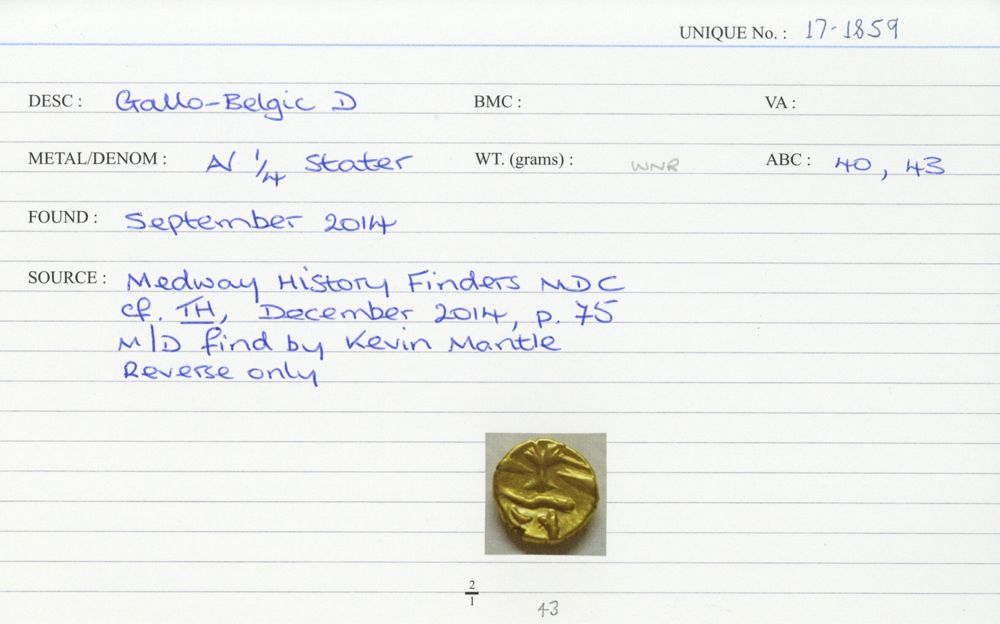 UNIQUE No. : 17-1859
DESC : Gallo-Belgic D BMC : VA :
METAL/DENOM : A/ 1/4 Stater WT. (grams) : WNR ABC : 40, 43
FOUND : September 2014
SOURCE : Medway History Finders MDC
cf. TH, December 2014, p. 75
M/D find by Kevin Mantle
Reverse only
2/1
43